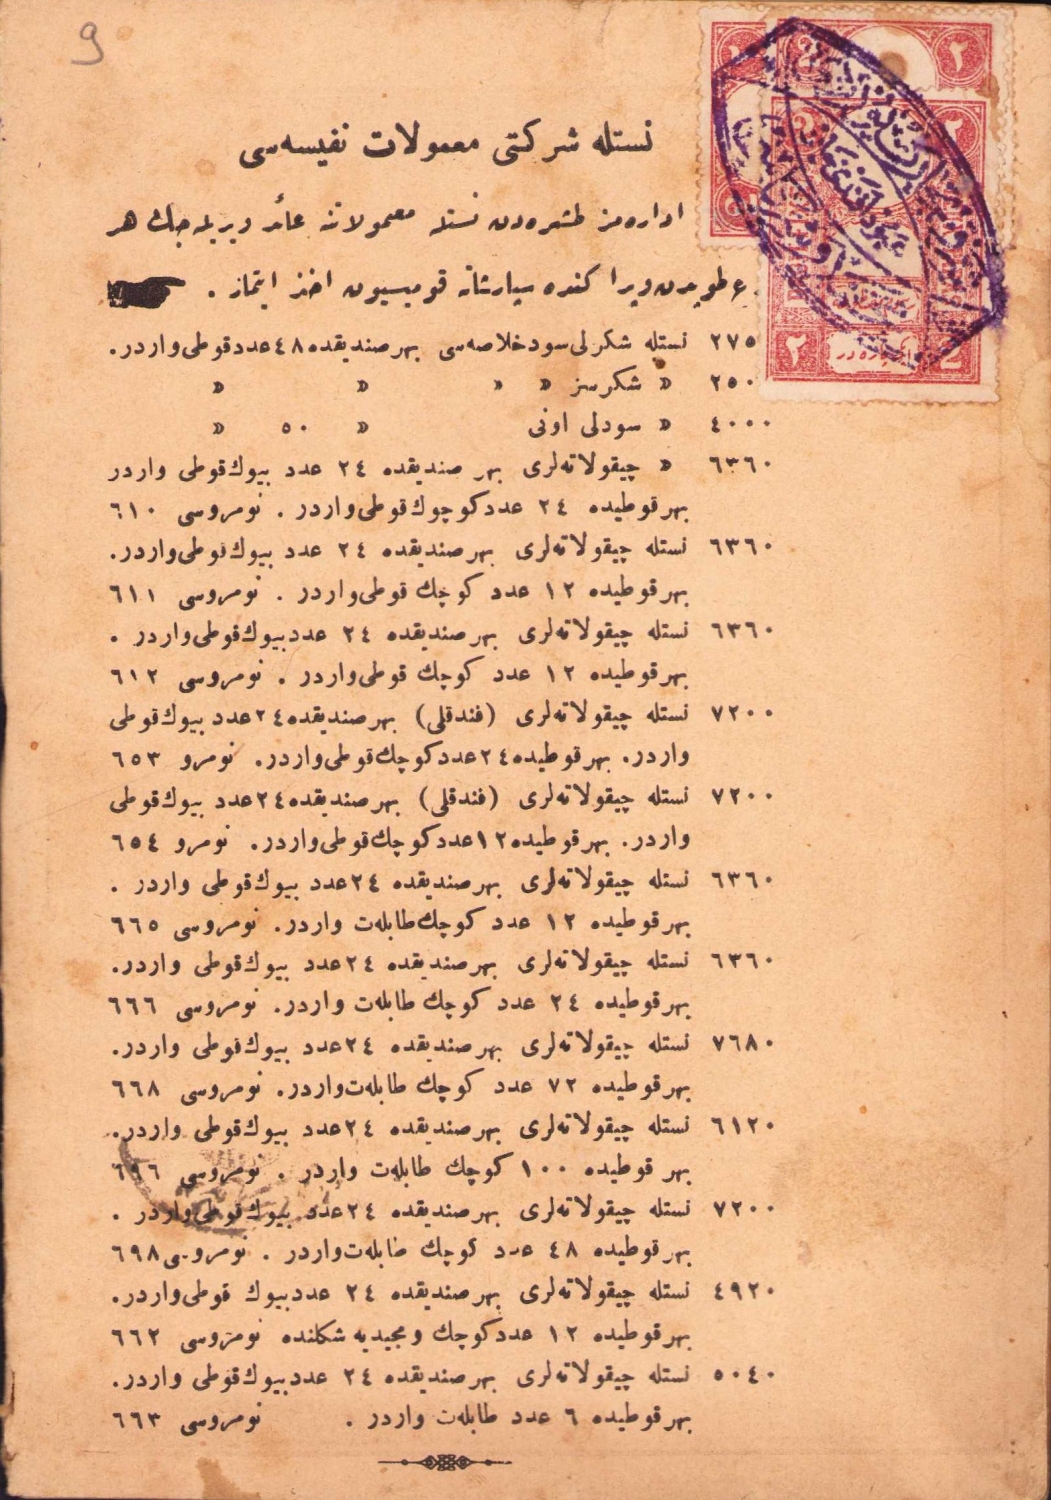 9
نستله شركتی معمولات نفیسه‌سی
اداره‌مز طشره‌دن نستله معمولاتنه عائد ویریله‌جك هر
كنده سپارشاته قومیسیون اخذ ایتمز .
٢٧٥ نستله شكرلی سود خلاصه‌سی بهر صندیقده ٤٨ عدد قوطی واردر.
٢٥٠ » شكرسز » » » »
٤٠٠٠ » سودلی اونی » ٥٠ »
٦٣٦٠ » چیقولاته‌لری بهر صندیقده ٢٤ عدد بیوك قوطی واردر
بهر قوطیده ٢٤ عدد كوچوك قوطی واردر . نومروسی ٦١٠
٦٣٦٠ نستله چیقولاته‌لری بهر صندیقده ٢٤ عدد بیوك قوطی واردر.
بهر قوطیده ١٢ عدد كوچك قوطی واردر . نومروسی ٦١١
٦٣٦٠ نستله چیقولاته‌لری بهر صندیقده ٢٤ عدد بیوك قوطی واردر .
بهر قوطیده ١٢ عدد كوچك قوطی واردر . نومروسی ٦١٢
٧٢٠٠ نستله چیقولاته‌لری (فندقلی) بهر صندیقده ٢٤ عدد بیوك قوطی
واردر. بهر قوطیده ٢٤ عدد كوچك قوطی واردر. نومرو ٦٥٣
٧٢٠٠ نستله چیقولاته‌لری (فندقلی) بهر صندیقده ٢٤ عدد بیوك قوطی
واردر. بهر قوطیده ١٢ عدد كوچك قوطی واردر. نومرو ٦٥٤
٦٣٦٠ نستله چیقولاته‌لری بهر صندیقده ٢٤ عدد بیوك قوطی واردر .
بهر قوطیده ١٢ عدد كوچك طابله‌ت واردر. نومروسی ٦٦٥
٦٣٦٠ نستله چیقولاته‌لری بهر صندیقده ٢٤ عدد بیوك قوطی واردر.
بهر قوطیده ٢٤ عدد كوچك طابله‌ت واردر. نومروسی ٦٦٦
٧٦٨٠ نستله چیقولاته‌لری بهر صندیقده ٢٤ عدد بیوك قوطی واردر.
بهر قوطیده ٧٢ عدد كوچك طابله‌ت واردر. نومروسی ٦٦٨
٦١٢٠ نستله چیقولاته‌لری بهر صندیقده ٢٤ عدد بیوك قوطی واردر.
بهر قوطیده ١٠٠ كوچك طابله‌ت واردر . نومروسی ٦٩٦
٧٢٠٠ نستله چیقولاته‌لری بهر صندیقده ٢٤ عدد بیوك قوطی واردر .
بهر قوطیده ٤٨ عدد كوچك طابله‌ت واردر . نومروسی ٦٩٨
٤٩٢٠ نستله چیقولاته‌لری بهر صندیقده ٢٤ عدد بیوك قوطی واردر.
بهر قوطیده ١٢ عدد كوچك و مجیدیه شكلنده نومروسی ٦٦٢
٥٠٤٠ نستله چیقولاته‌لری بهر صندیقده ٢٤ عدد بیوك قوطی واردر.
بهر قوطیده ٦ عدد طابله‌ت واردر . نومروسی ٦٦٣